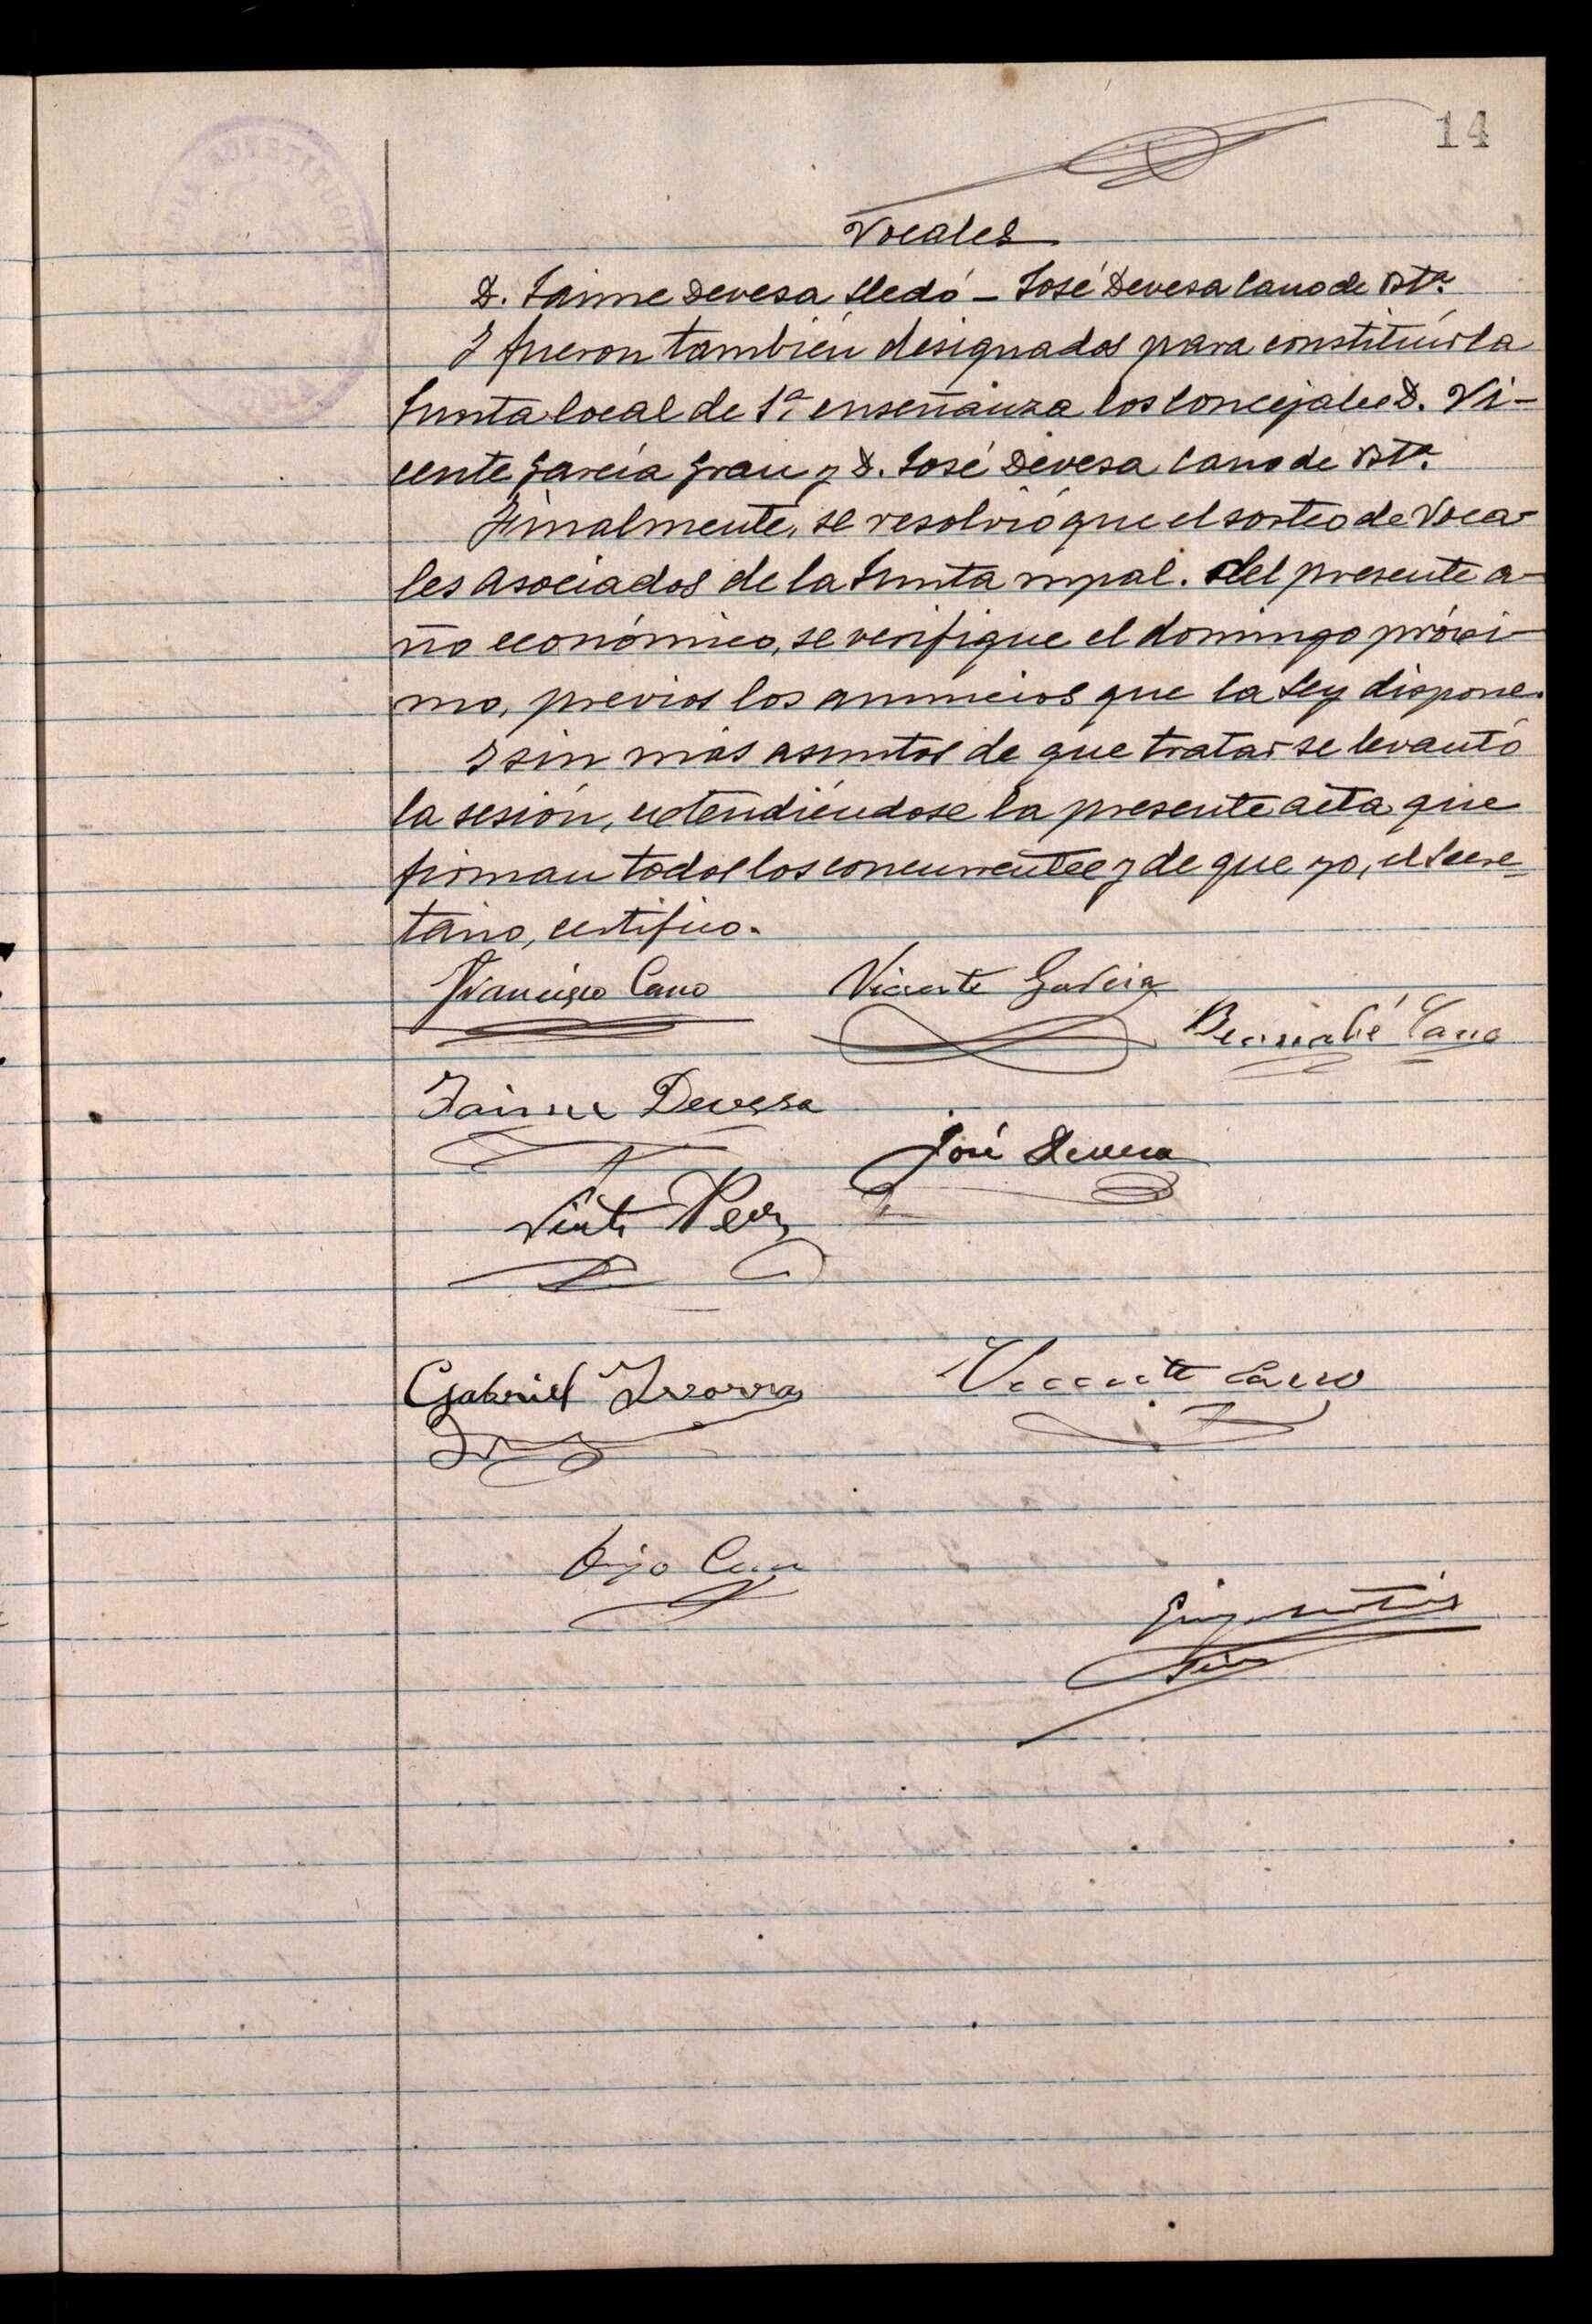 14
Vocales
D. Jaime Devesa Lledó - José Devesa Cano de Bta.
Y fueron también designados para constituir la
Junta local de 1ª enseñanza los concejales D. Vi-
cente García Grau y D. José Devesa Cano de Bta.
Finalmente, se resolvió que el sorteo de Voca-
les asociados de la Junta mpal. del presente a-
ño económico, se verifique el domingo próxi-
mo, previos los anuncios que la Ley dispone.
Y sin más asuntos de que tratar se levantó
la sesión, extendiéndose la presente acta que
firman todos los concurrentes y de que yo, el Secre-
tario, certifico.
Francisco Cano Vicente García
Bernabé Cano
Jaime Devesa
José Devesa
Vicente Perez
Gabriel Ivorra Vicente Cano